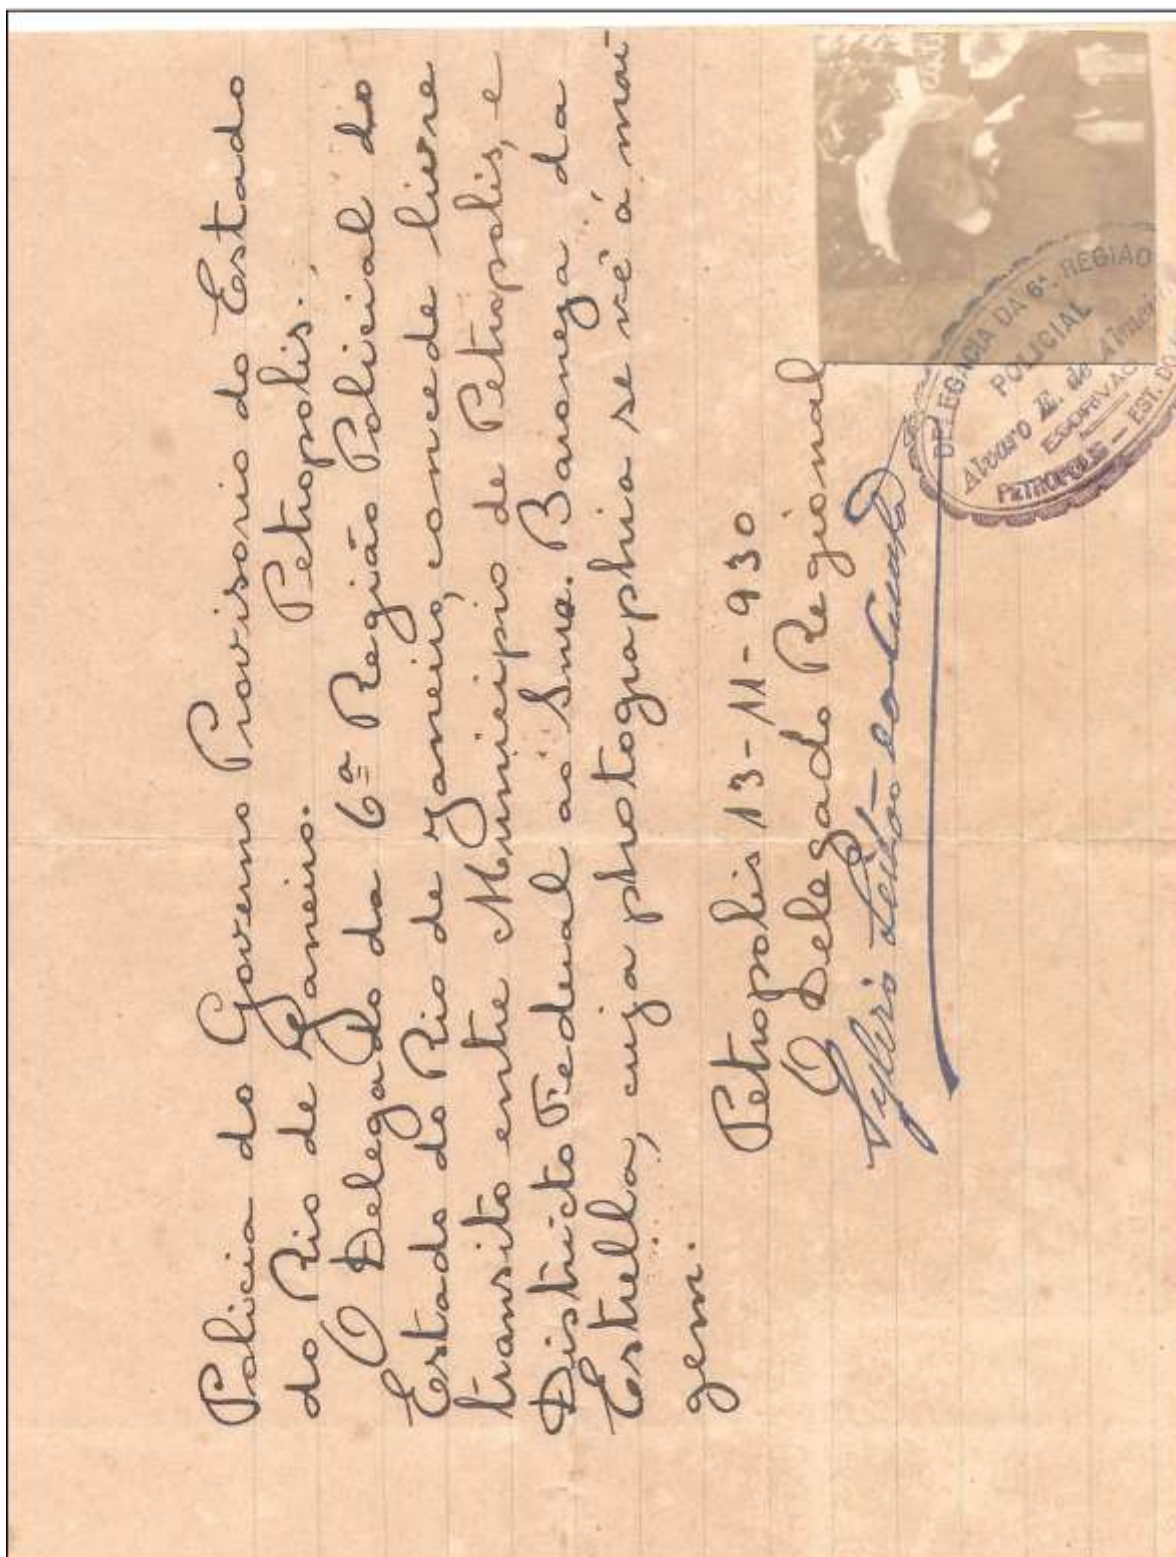 Policia do Governo Provisorio do Estado
do Rio de Janeiro. Petropolis.
O Delegado da 6ª Região Policial do
Estado do Rio de Janeiro, concede livre
transito entre Municipio de Petropolis, e
Districto Federal ao Snra. Baroneza da
Estrella, cuja photographia se vê á mar-
gem.
Petropolis 13-11-930
O Delegado Regional
Leitão da Cunha
DELEGACIA DA 6ª. REGIÃO
POLICIAL
Alvaro E. de
ESCRIVÃO
PETROPOLIS — EST. DO